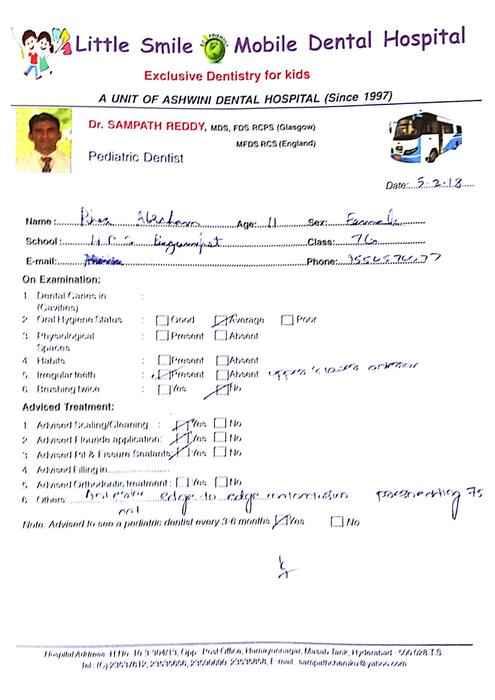 Little Smile Mobile Dental Hospital
Exclusive Dentistry for kids
A UNIT OF ASHWINI DENTAL HOSPITAL (Since 1997)
Dr. SAMPATH REDDY, MDS, FDS RCPS (Glasgow)
MFDS RCS (England)
Pediatric Dentist
Date: 5-2-18
Name : Age: 11 Sex: Female
School : H P S Begumpet Class:
E-mail: Phone:
On Examination:
1 Dental Caries in :
(Cavities)
2 Oral Hygiene Status : Good Average Poor
3 Physiological : Present Absent
Spaces
4 Habits : Present Absent
5 Irregular teeth : Present Absent upper & lower anterior
6 Brushing twice : Yes No
Adviced Treatment:
1 Advised Scaling/Cleaning : Yes No
2 Advised Flouride application: Yes No
3 Advised Pit & Fissure Sealants: Yes No
4 Advised Filling in
5 Advised Orthodontic treatment : Yes No
6 Others Anterior edge to edge
Note. Advised to see a pediatric dentist every 3-6 months Yes No
Hospital Address: H.No. 10-3-304/13, Opp. Post Office, Humayunnagar, Masab Tank, Hyderabad - 500 028 T.S.
Tel : 23535666, E-mail: